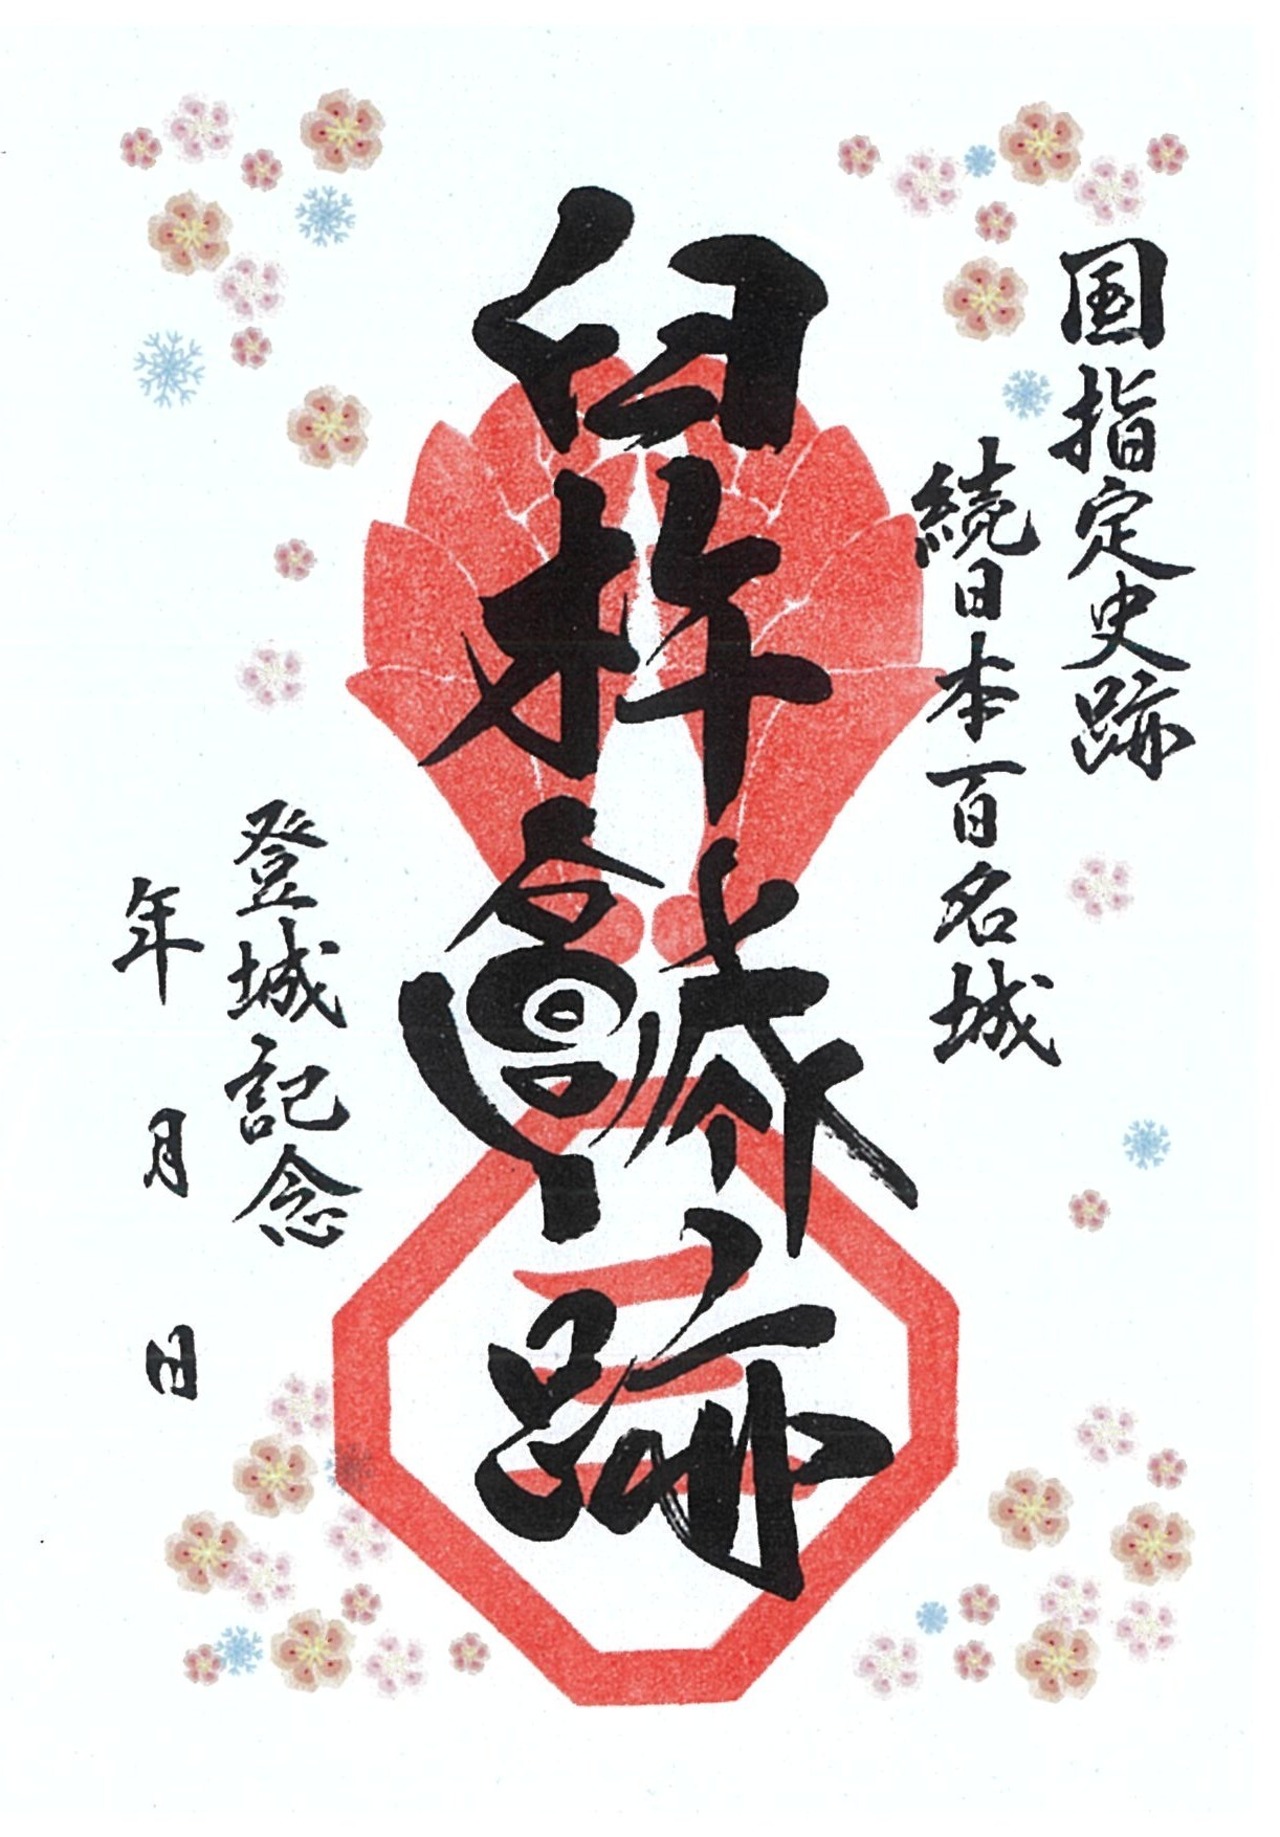 国指定史跡
続日本百名城
臼杵城跡
三
登城記念
年 月 日